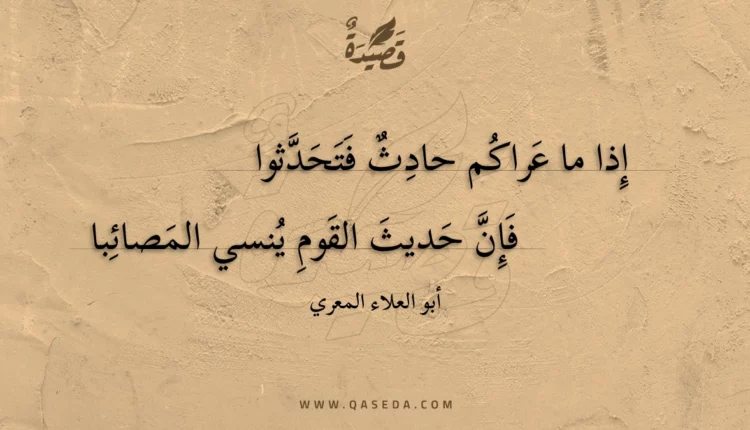 قَصِيدَةٌ
إِذا ما عَراكُم حادِثٌ فَتَحَدَّثوا
فَإِنَّ حَديثَ القَومِ يُنسي المَصائِبا
أبو العلاء المعري
WWW.QASEDA.COM